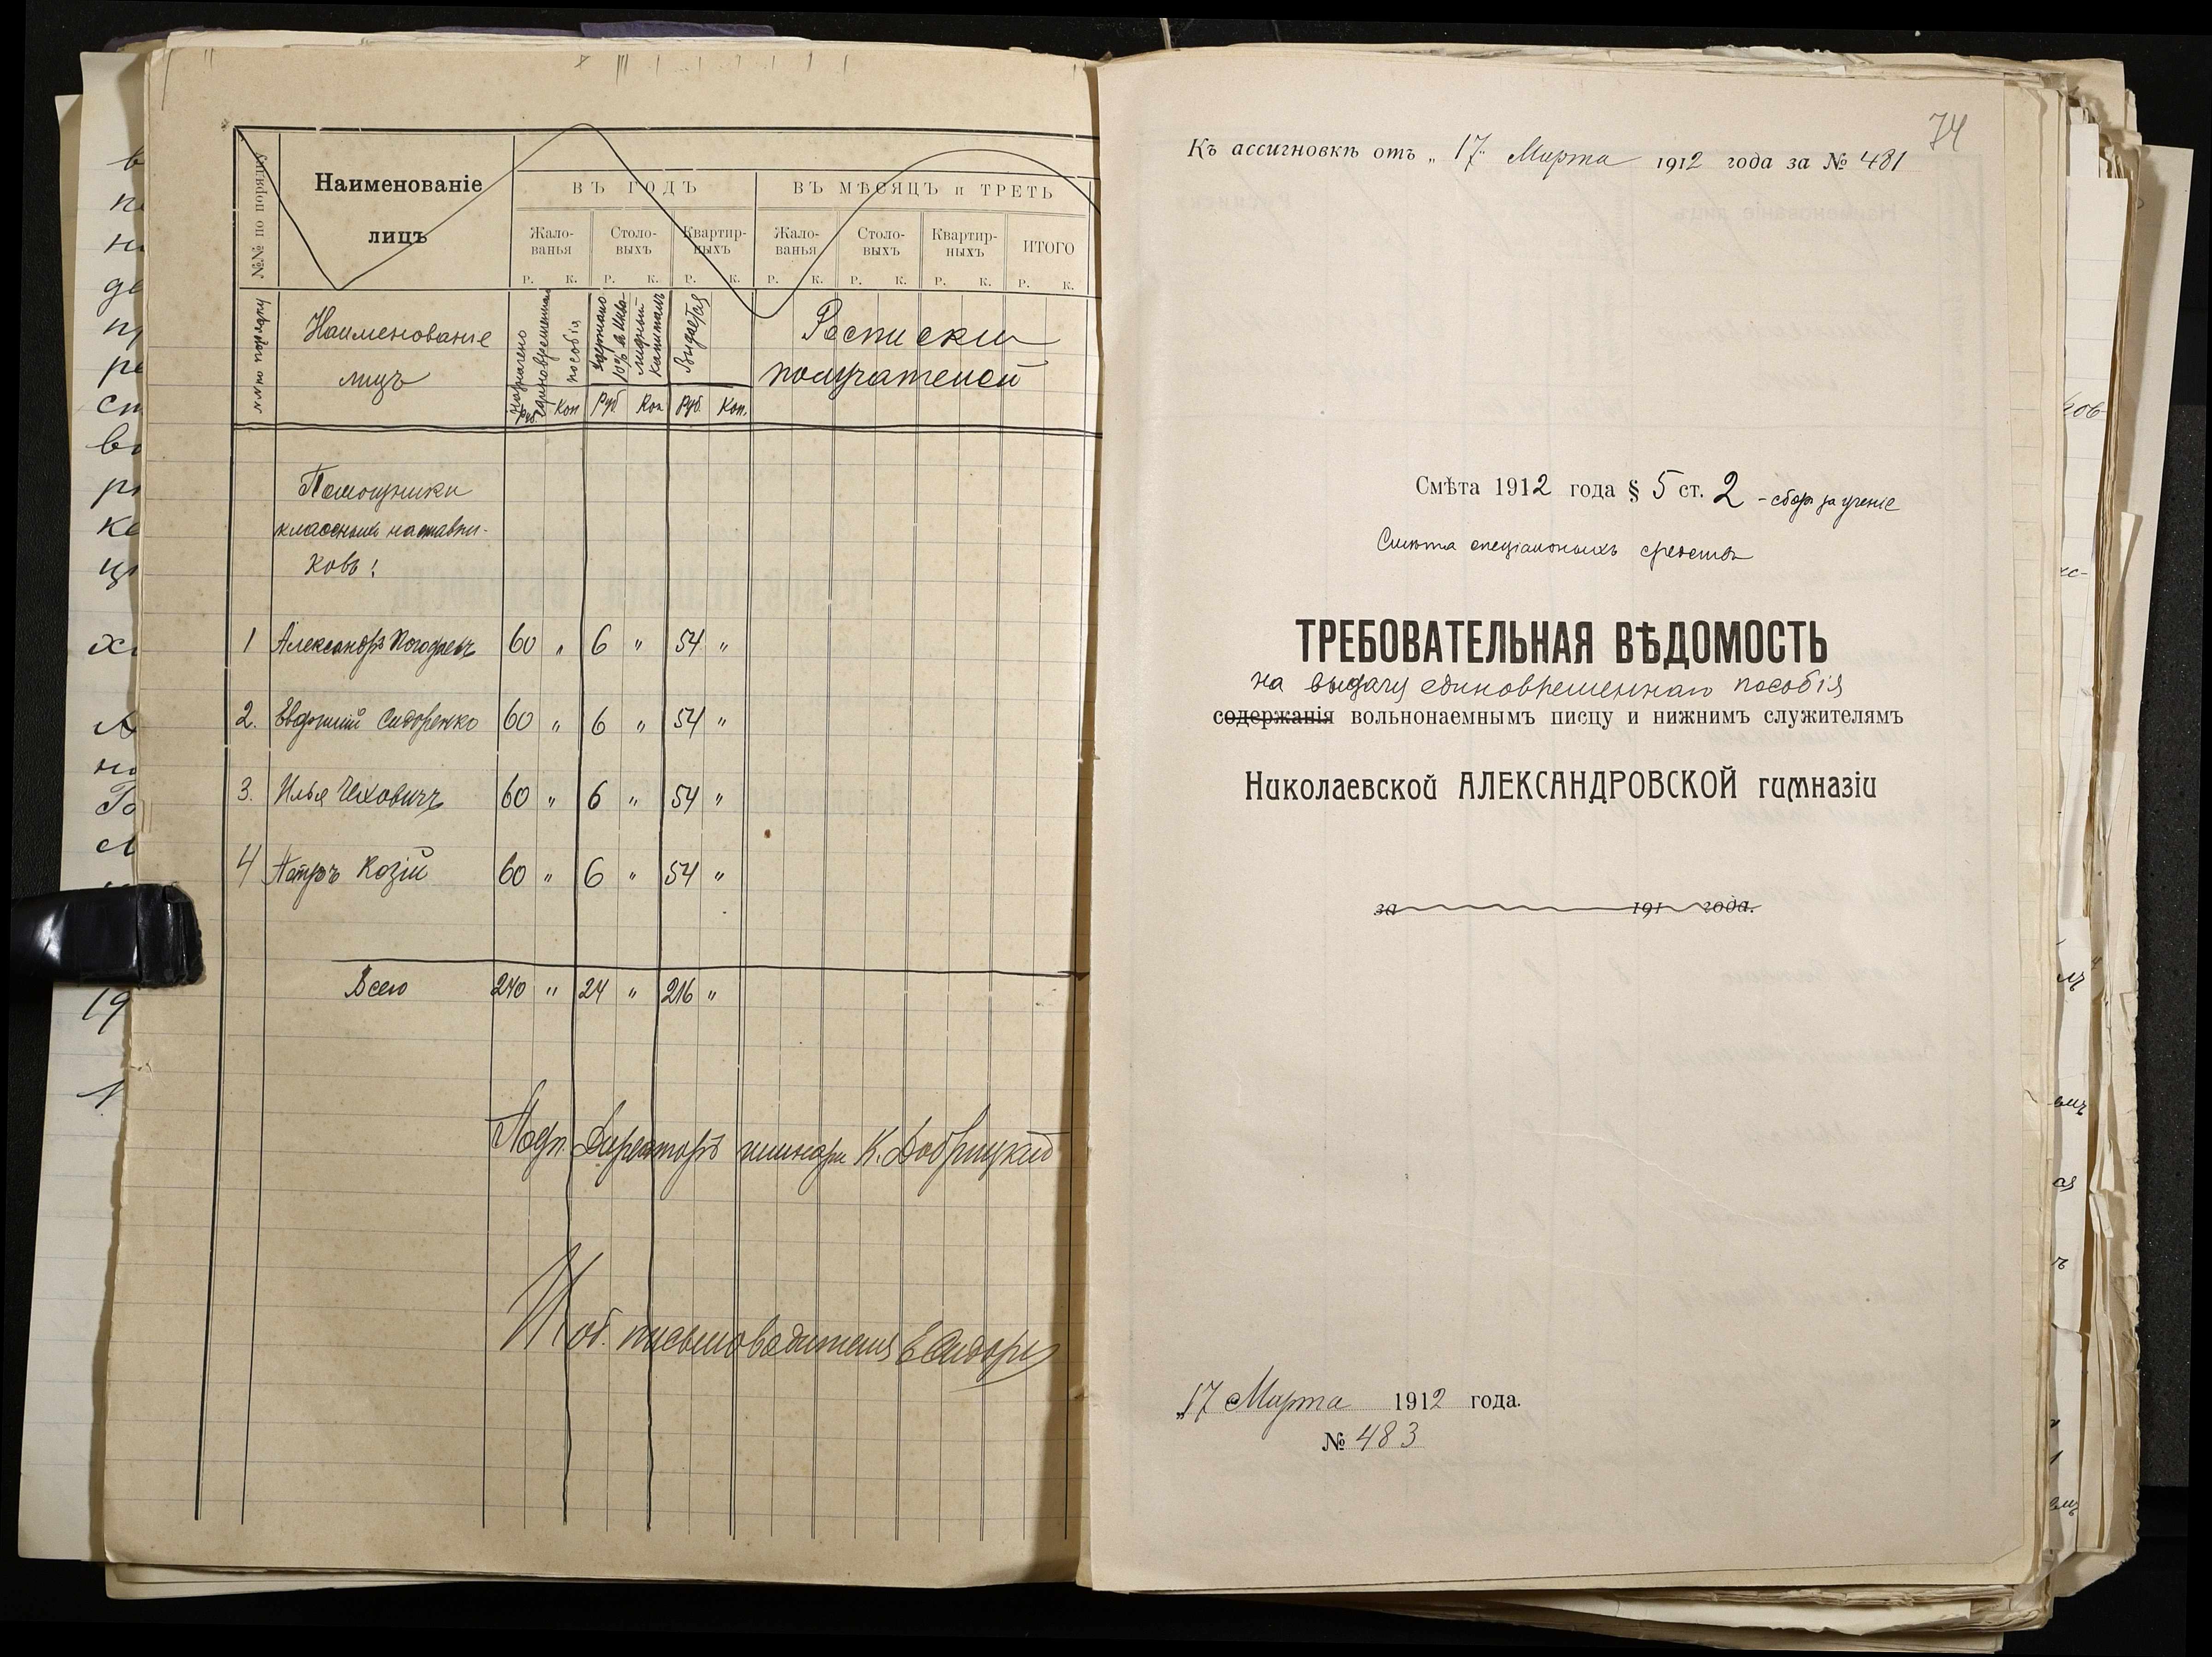 №№ по порядку
Наименованіе
лицъ
ВЪ ГОДЪ
ВЪ МѢСЯЦЪ и ТРЕТЬ
Жало-
ванья
Столо-
выхъ
Квартир-
ныхъ
Жало-
ванья
Столо-
выхъ
Квартир-
ныхъ
ИТОГО
Р. К. Р. К. Р. К. Р. К. Р. К. Р. К. Р. К.
№№ по порядку
Наименованіе
лицъ
Назначено
единовременнаго
пособія
Удержано
10% в Инва-
лидный
капиталъ
Выдается
Росписки
получателей
Руб. Коп Руб Коп Руб. Коп.
Помощники
классныхъ наставни-
ковъ:
1 Александръ 60 „ 6 „ 54 „
2. Евгеній Сидоренко 60 „ 6 „ 54 „
3. Илья Чеховичъ 60 „ 6 „ 54 „
4 Петръ Козій 60 „ 6 „ 54 „
Всего 240 „ 24 „ 216 „
Подп. Директоръ гимназіи К. Добрицкій
И. об. письмоводителя Е Сидоре
74
Къ ассигновкѣ отъ „ 17 " Марта 1912 года за № 481
Смѣта 1912 года § 5 ст. 2 - сборъ за ученіе
Смѣта спеціальныхъ средствъ
ТРЕБОВАТЕЛЬНАЯ ВѢДОМОСТЬ
на выдачу единовременнаго пособія
содержанія вольнонаемнымъ писцу и нижнимъ служителямъ
Николаевской АЛЕКСАНДРОВСКОЙ гимназіи
за 191 года.
„17 Марта 1912 года.
№ 483